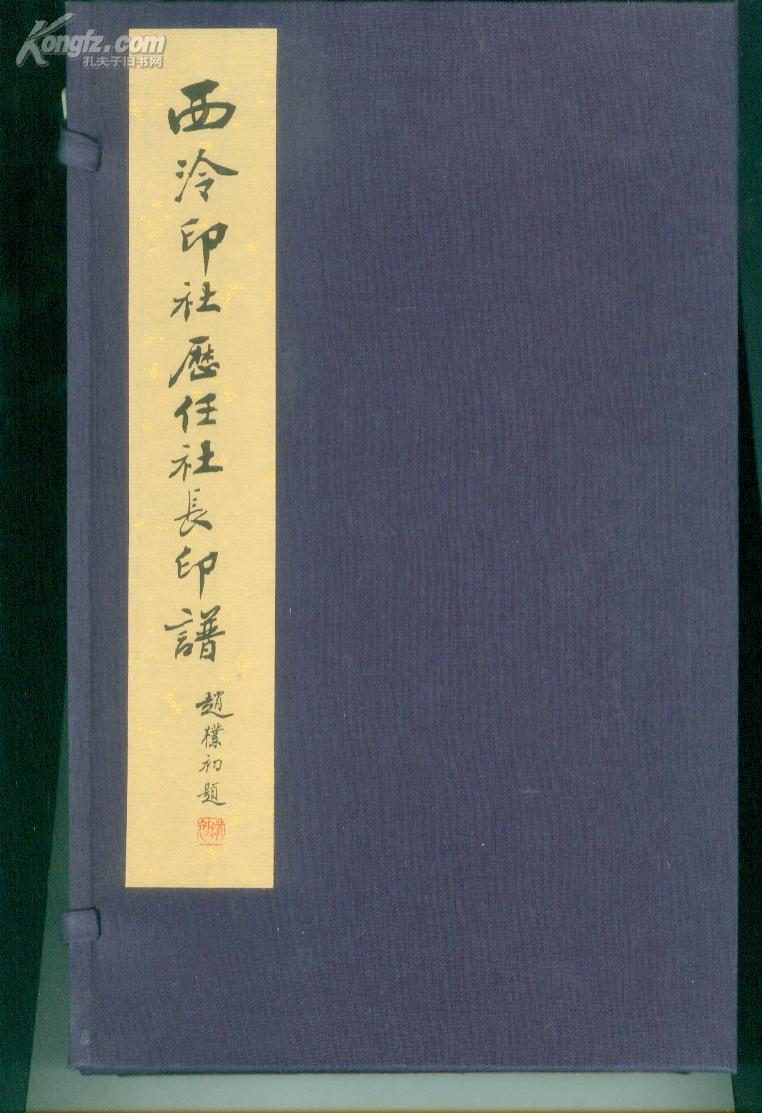 Kongfz.com
孔夫子旧书网
西泠印社歷任社長印譜
趙樸初題